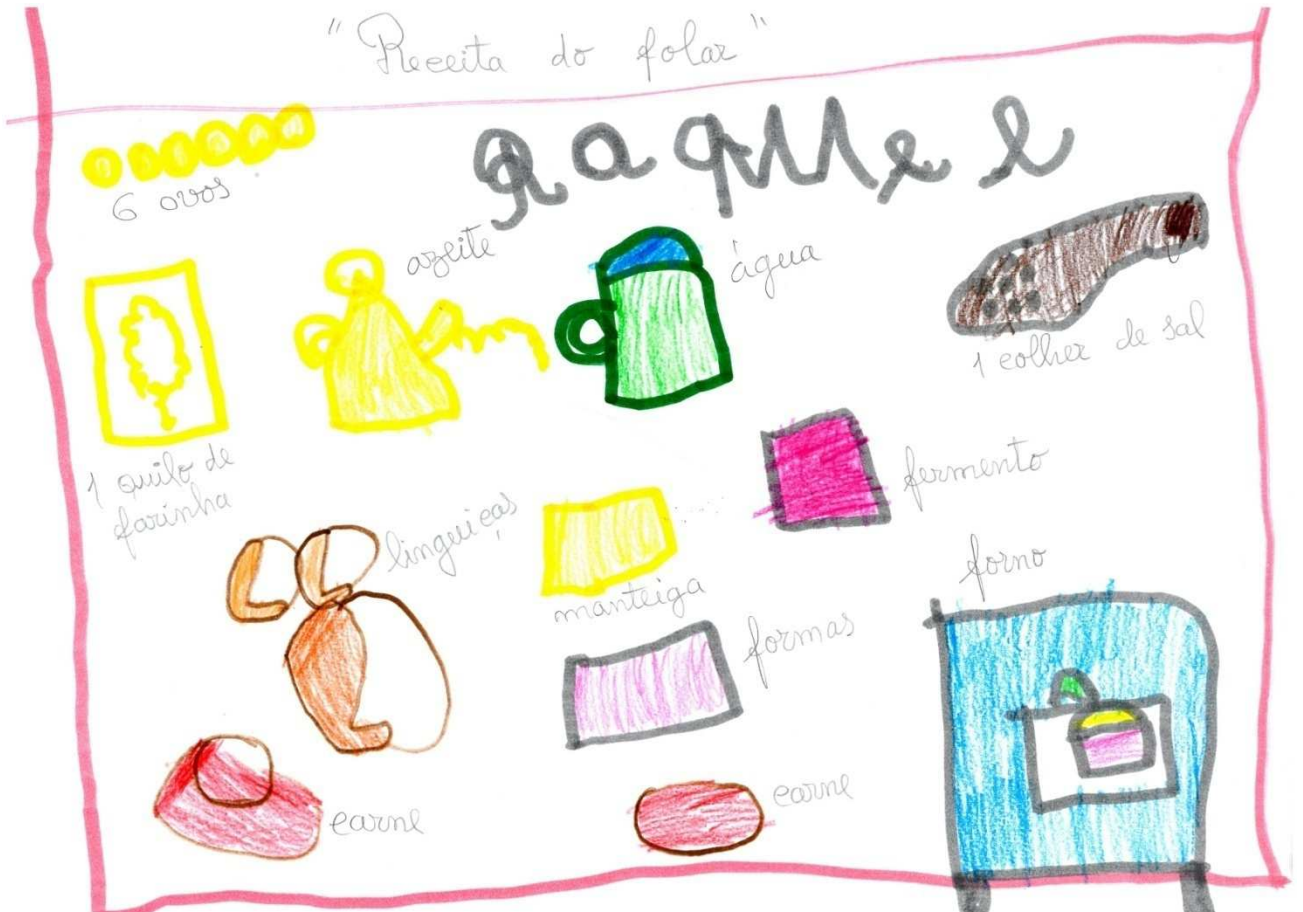 "Receita do folar"
Raquel
6 ovos
azeite
água
1 colher de sal
1 quilo de
farinha
linguiças
manteiga
fermento
formas
forno
carne
carne